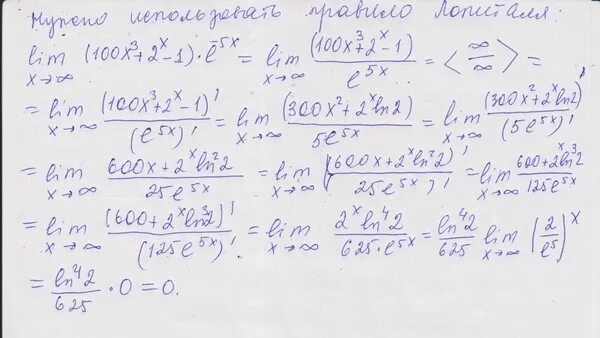 Нужно использовать правило Лопиталя:
lim x→∞ (100x³+2ˣ-1)·e⁻⁵ˣ = lim x→∞ (100x³+2ˣ-1)/e⁵ˣ = <∞/∞> =
= lim x→∞ (100x³+2ˣ-1)'/(e⁵ˣ)' = lim x→∞ (300x²+2ˣln2)/5e⁵ˣ = lim x→∞ (300x²+2ˣln2)'/(5e⁵ˣ)'
= lim x→∞ (600x+2ˣln²2)/25e⁵ˣ = lim x→∞ (600x+2ˣln²2)'/(25e⁵ˣ)' = lim x→∞ (600+2ˣln³2)/125e⁵ˣ
= lim x→∞ (600+2ˣln³2)'/(125e⁵ˣ)' = lim x→∞ 2ˣln⁴2/625·e⁵ˣ = ln⁴2/625 lim x→∞ (2/e⁵)ˣ
= ln⁴2/625 · 0 = 0.